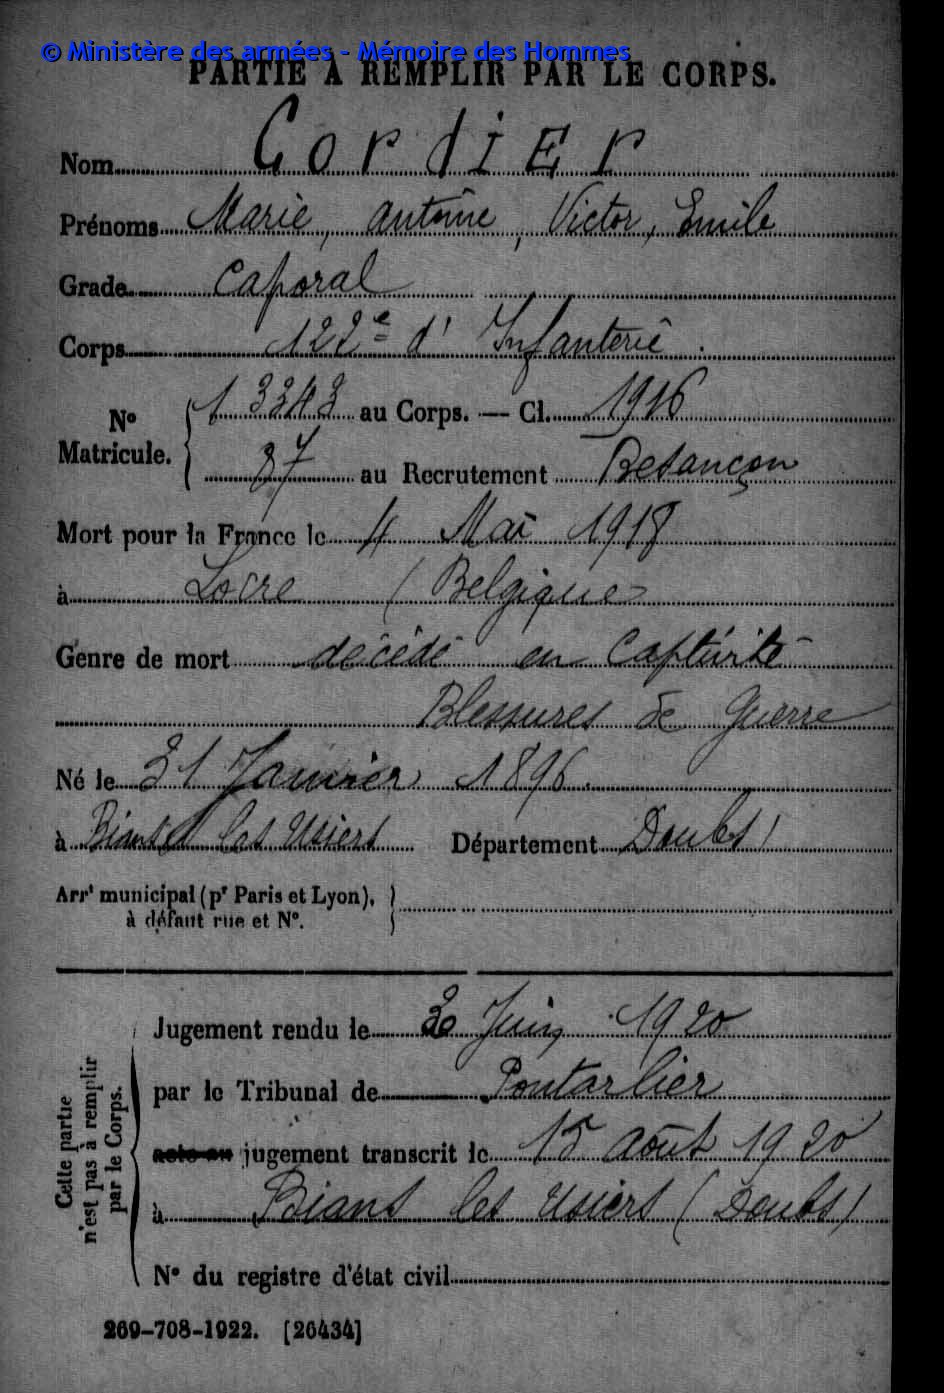 © Ministère des armées - Mémoire des Hommes
PARTIE A REMPLIR PAR LE CORPS.
Nom Cordier
Prénoms Marie, Antoine, Victor, Emile
Grade Caporal
Corps 122e d'Infanterie.
N° Matricule. { 13343 au Corps. — Cl. 1916
87 au Recrutement Besançon
Mort pour la France le 4 Mai 1918
à Locre (Belgique)
Genre de mort décédé en captivité
Blessures de Guerre
Né le 31 Janvier 1896.
à Bians les Usiers Département Doubs
Arrt municipal (pr Paris et Lyon), }
à défaut rue et N°.
Cette partie
n'est pas à remplir
par le Corps.
Jugement rendu le Juin 1920
par le Tribunal de Pontarlier
acte ou jugement transcrit le 15 août 1920
à Bians les Usiers (Doubs)
N° du registre d'état civil
269-708-1922. [26434]